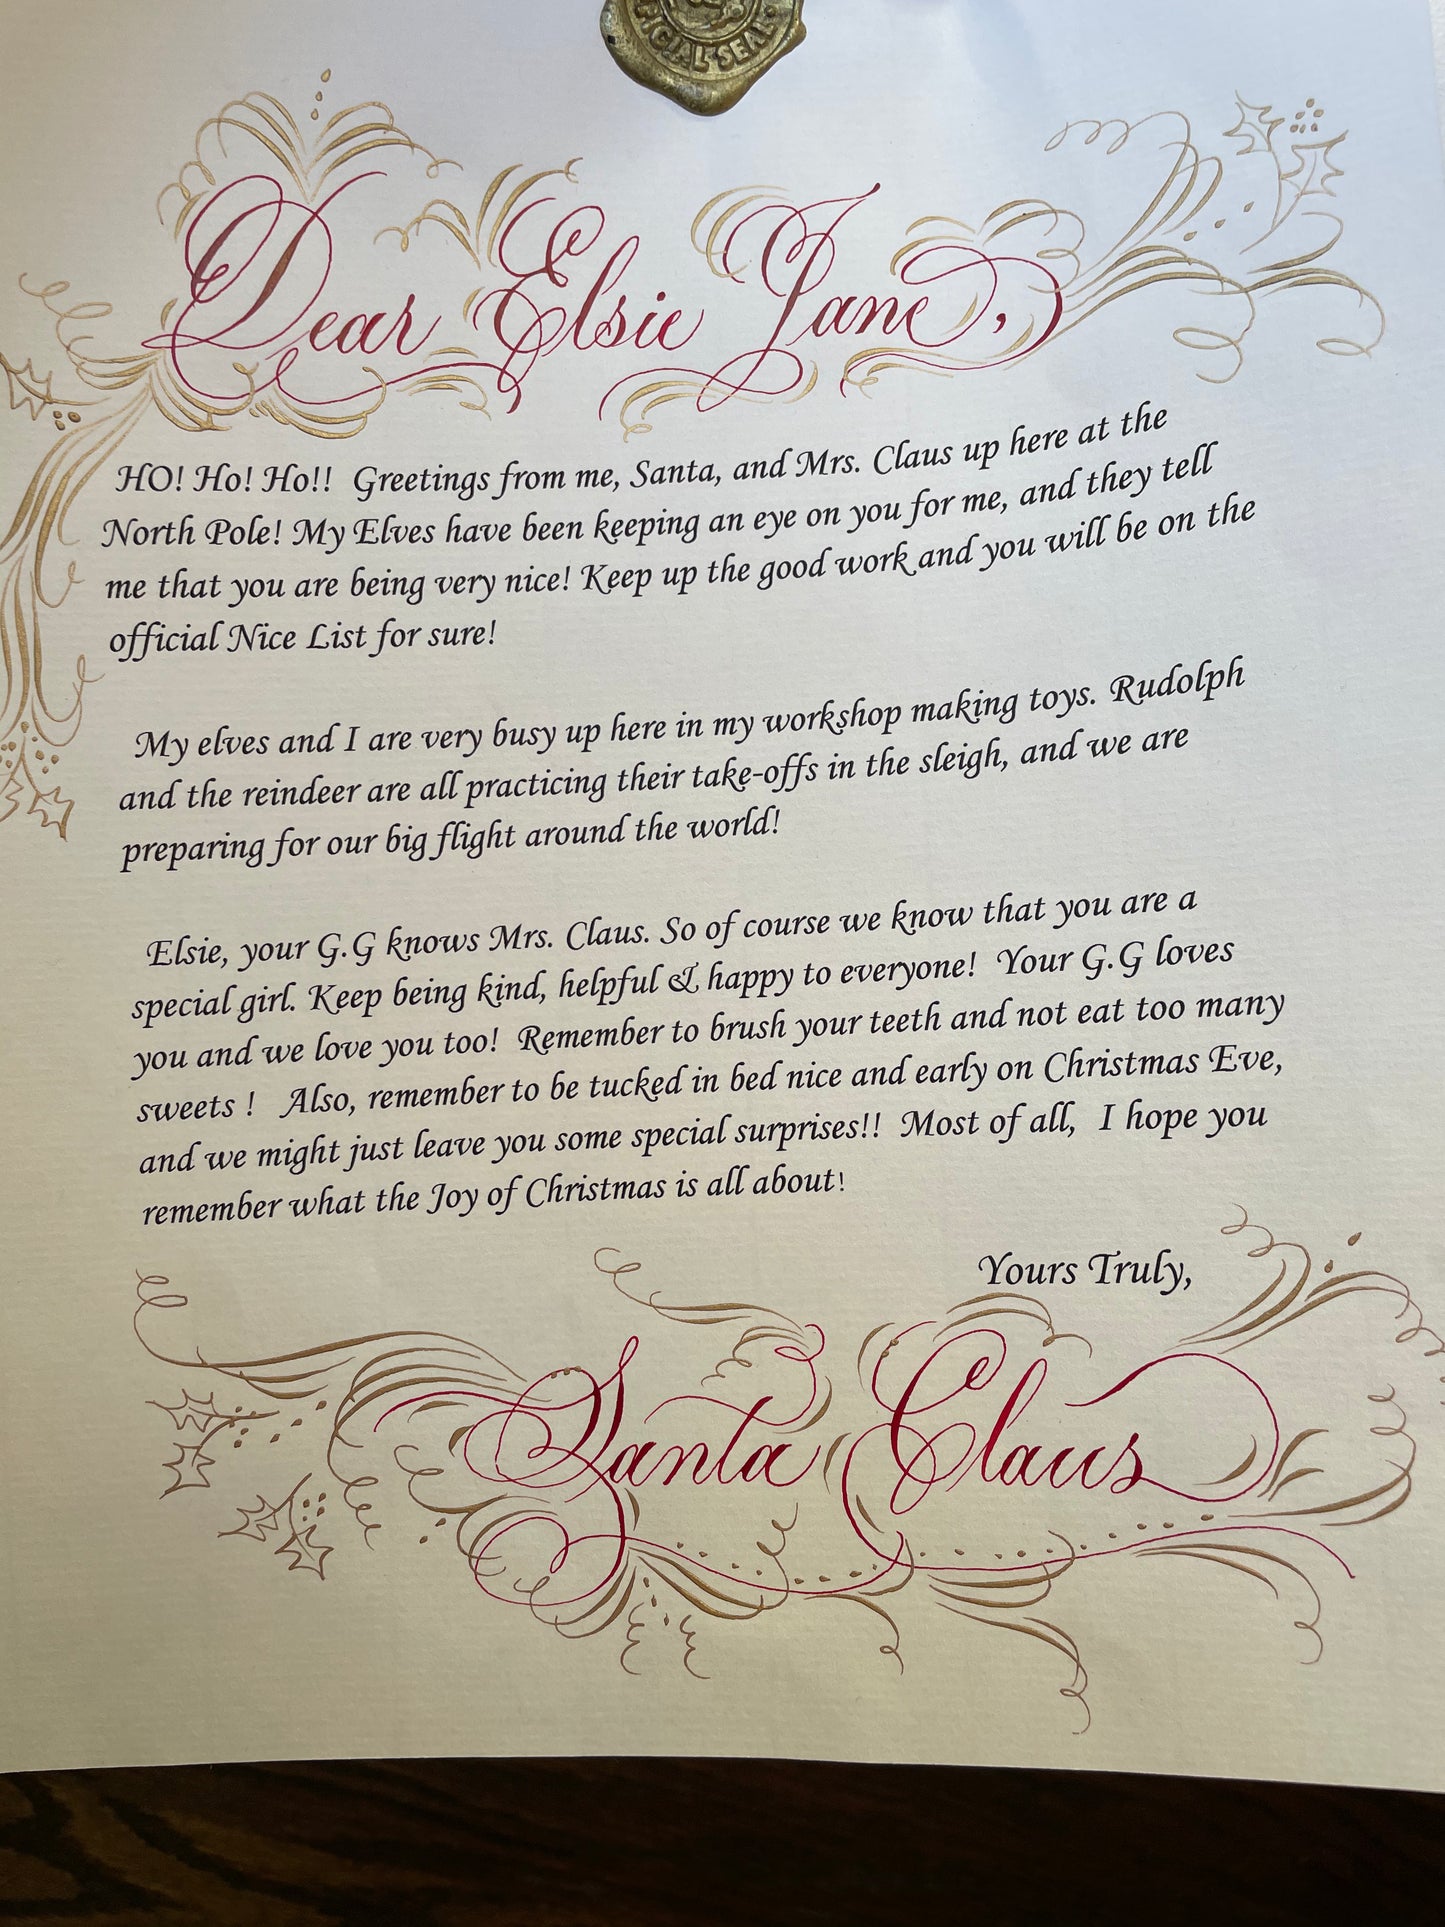 OFFICIAL SEAL
Dear Elsie Jane,
HO! Ho! Ho!! Greetings from me, Santa, and Mrs. Claus up here at the
North Pole! My Elves have been keeping an eye on you for me, and they tell
me that you are being very nice! Keep up the good work and you will be on the
official Nice List for sure!
My elves and I are very busy up here in my workshop making toys. Rudolph
and the reindeer are all practicing their take-offs in the sleigh, and we are
preparing for our big flight around the world!
Elsie, your G.G knows Mrs. Claus. So of course we know that you are a
special girl. Keep being kind, helpful & happy to everyone! Your G.G loves
you and we love you too! Remember to brush your teeth and not eat too many
sweets ! Also, remember to be tucked in bed nice and early on Christmas Eve,
and we might just leave you some special surprises!! Most of all, I hope you
remember what the Joy of Christmas is all about!
Yours Truly,
Santa Claus